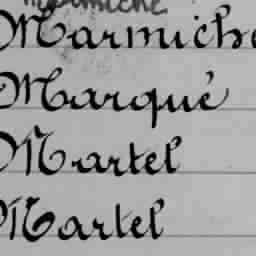 Marmiche
Marmiche
Marqué
Martel
Martel